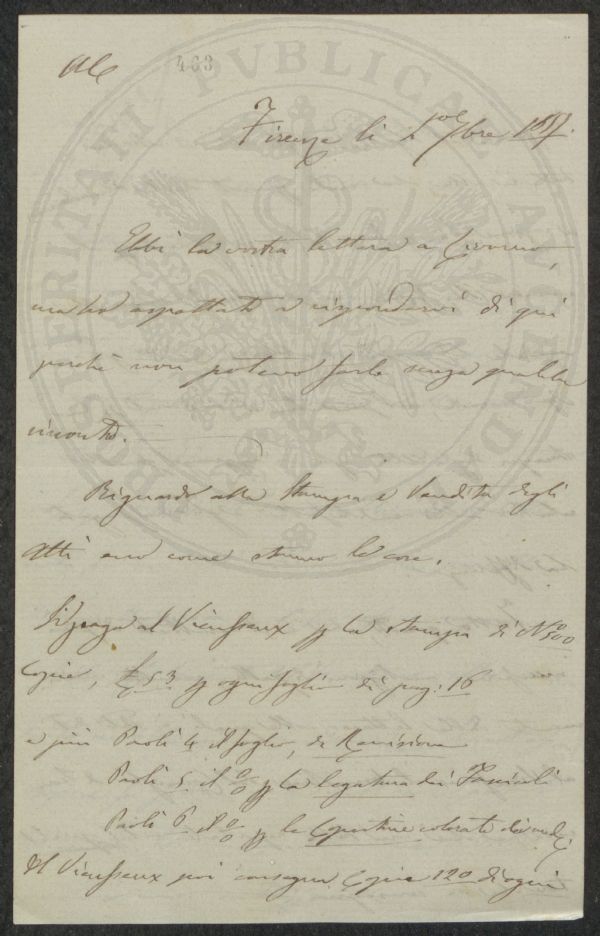 463
Firenze li 1° 7bre
Ebbi la vostra lettera a Livorno,
ma ho aspettato a rispondervi di qui
perchè non potevo farlo senza qualche
riscontro.
Riguardo alla Stampa e Vendita degli
Atti ecco come stanno le cose.
Si paga al Vieusseux p la stampa di No 500
Copie, £ 53 p ogni foglio di pag: 16
e più Paoli 4 il foglio, di Revisione
Paoli 5. il % p la legatura dei Fascicoli
Paoli 6. il % p le Copertine colorate
Il Vieusseux poi consegna Copie 120 di ogni
POSTERITATI PVBLICAE AVGENDA